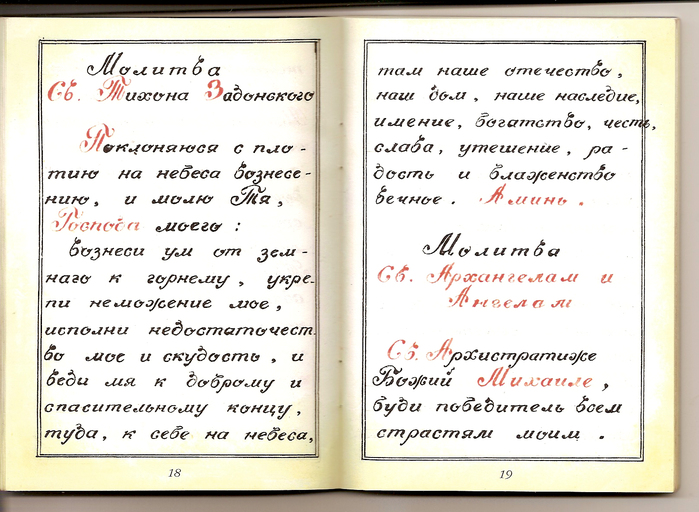 Молитва
Св. Тихона Задонского
Поклоняюся с пло-
тию на небеса вознесе-
нию, и молю Тя,
Господа моего:
возneси ум от зем-
наго к горнему, укре-
пи неможение мое,
исполни недостаточест
во мое и скудость, и
веди мя к доброму и
спасительному концу,
туда, к себе на небеса,
18
там наше отечество,
наш дом, наше наследие,
имение, богатство, честь,
слава, утешение, ра-
дость и блаженство
вечное. Аминь.
Молитва
Св. Архангелам и
Ангелам
Св. Архистратиже
Божий Михаиле,
буди победитель всем
страстям моим.
19